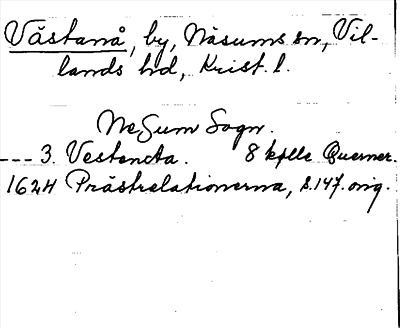 Västanå, by, Näsums sn, Vil-
lands hd, Krist. l.
NeSum Sogn.
--- 3. Vestancta. 8 kølle Querner.
1624 Prästrelationerna, s. 147. orig.